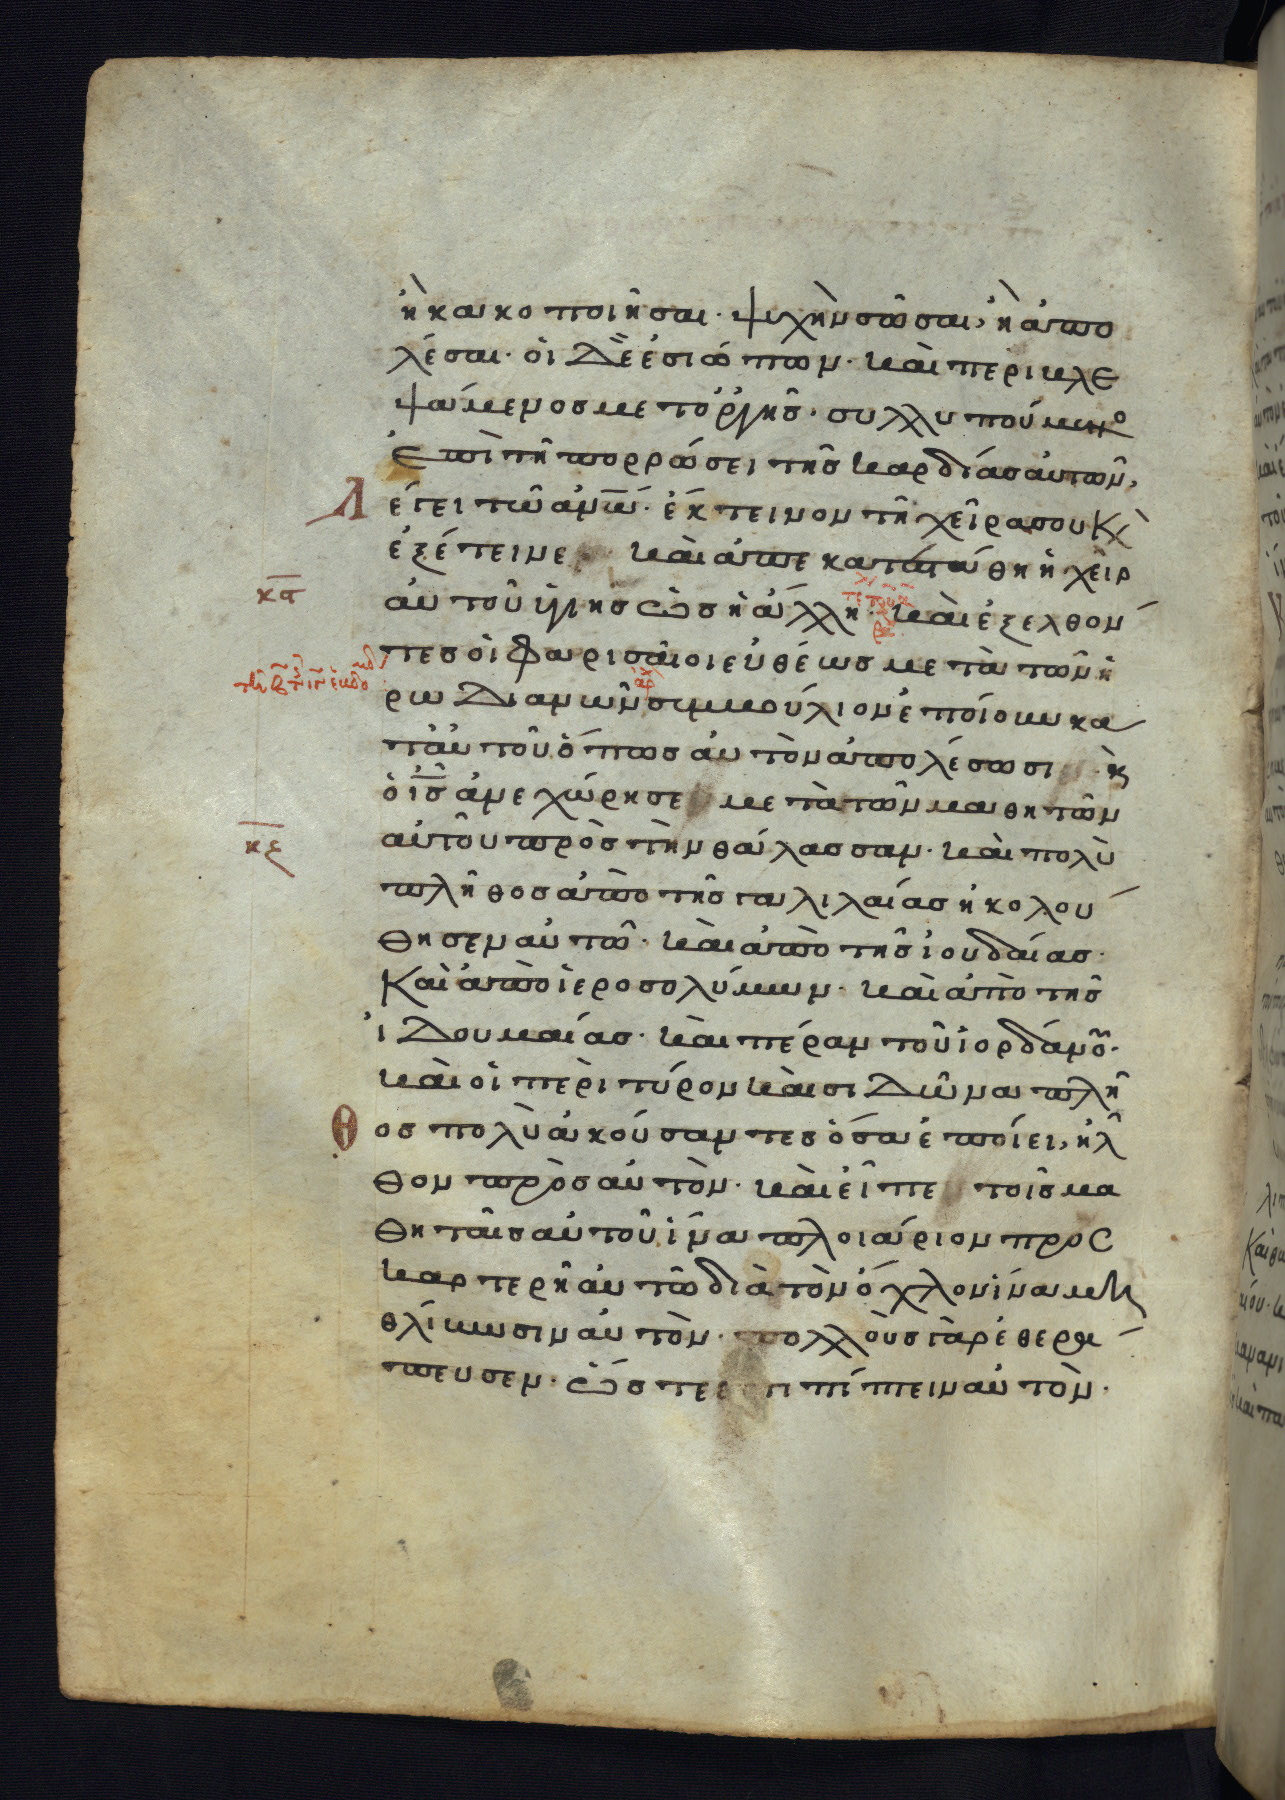 ἢ κακοποιῆσαι· ψυχὴν σῶσαι, ἢ ἀπο
λέσαι· οἱ δὲ ἐσιώπων· καὶ περιβλε
ψάμενος μετ ὀργῆς· συλλυπούμενο
ἐπὶ τῆ πορρώσει τῆς καρδίας αὐτῶν,
Λέγει τῶ ἀνῶ· ἔκτεινον τὴ χεῖρα σου κ
ἐξέτεινε καὶ ἀπεκατεστάθη ἡ χεὶρ
κα αὐτοῦ ὑγιὴς ὡς ἡ ἄλλη· καὶ ἐξελθόν
τες οἱ φαρισαῖοι εὐθέως μετὰ τῶν ἡ
ρωδιανῶν συμβούλιον ἐποίουν κα
τ αὐτοῦ ὅπως αὐτὸν ἀπολέσωσι κ
ὁ ις ἀνεχώρησε μετὰ τῶν μαθητῶν
κε αὐτοῦ πρὸς τὴν θάλασσαν· καὶ πολὺ
πλῆθος ἀπὸ τῆς γαλιλαίας ἠκολού
θησεν αὐτῶ· καὶ ἀπὸ τῆς ἰουδαίας·
Καὶ ἀπὸ ἱεροσολύμων· καὶ ἀπὸ τῆς
ἰδουμαίας· καὶ πέραν τοῦ ἰορδάνου·
καὶ οἱ περὶ τύρον καὶ σιδῶνα πλῆ
Θος πολὺ ἀκούσαντες ὅσα ἐποίει, ἦλ
θον πρὸς αὐτὸν· καὶ εἶπε τοῖς μα
θηταῖς αὐτοῦ ἵνα πλοιάριον προς
καρτερῆ αὐτῶ διὰ τὸν ὄχλον ἵνα μὴ
θλίβωσιν αὐτὸν· πολλοὺς γὰρ ἐθερά
πευσεν· ὥστε ἐπιπίπτειν αὐτὸν·